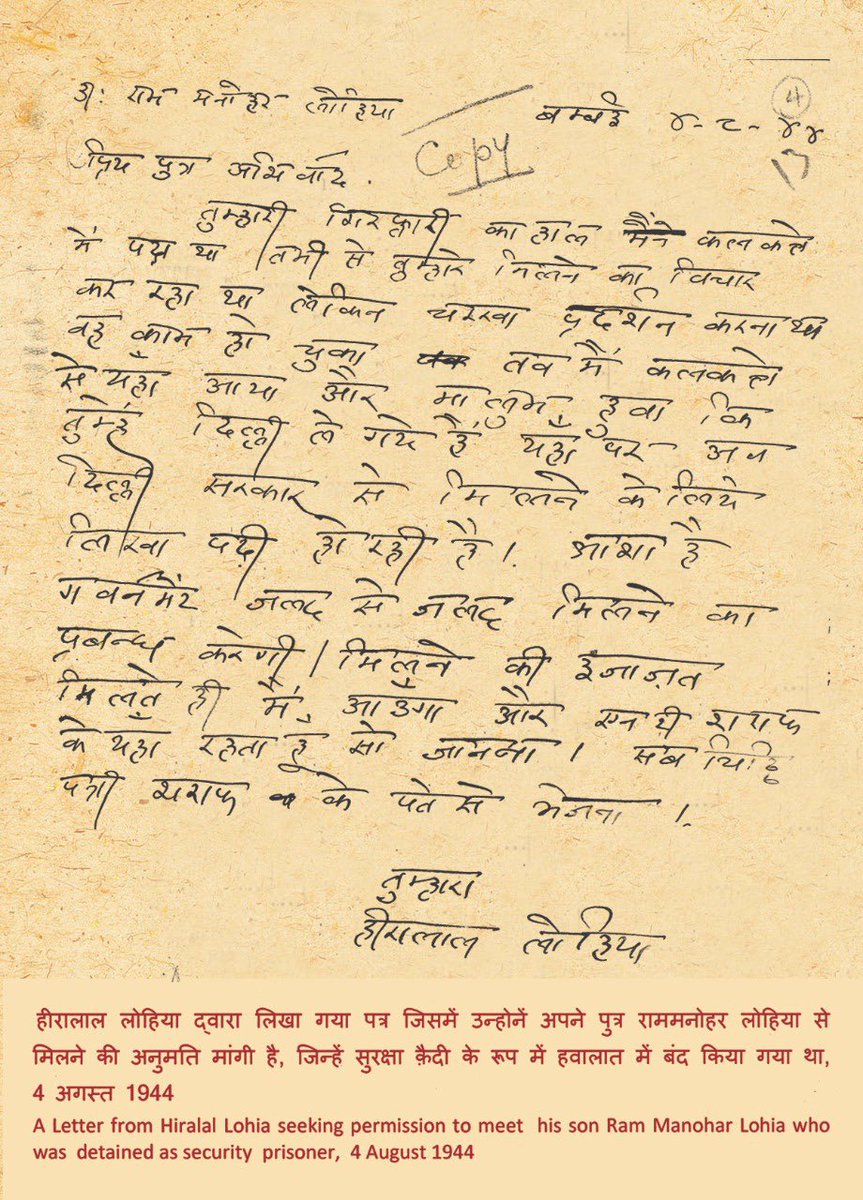 डा: राम मनोहर लोहिया
बम्बई ४-८-४४
4
Copy
17
प्रिय पुत्र आशिर्वाद.
तुम्हारी गिरफ्तारी का हाल मैंने कलकत्ते
में पढ़ा था तभी से तुम्हारे मिलने का विचार
कर रहा था लेकिन चरखा प्रदर्शन करना था
वह काम हो चुका तब मैं कलकत्ते
से यहाँ आया और मालुम हुवा कि
तुम्हें दिल्ली ले गये हैं यहाँ पर अब
दिल्ली सरकार से मिलने के लिये
लिखा पढ़ी हो रही है। आशा है
गवर्नमेंट जलद से जलद मिलने का
प्रबन्ध करेगी। मिलने की इजाज़त
मिलते ही मैं आउँगा और एन डी शराफ
के यहाँ रहता हूँ सो जानना। सब चिट्ठि
पत्री शराफ के पते से भेजना।
तुम्हारा
हीरालाल लोहिया
हीरालाल लोहिया द्वारा लिखा गया पत्र जिसमें उन्होनें अपने पुत्र राममनोहर लोहिया से
मिलने की अनुमति मांगी है, जिन्हें सुरक्षा क़ैदी के रूप में हवालात में बंद किया गया था,
4 अगस्त 1944
A Letter from Hiralal Lohia seeking permission to meet his son Ram Manohar Lohia who
was detained as security prisoner, 4 August 1944